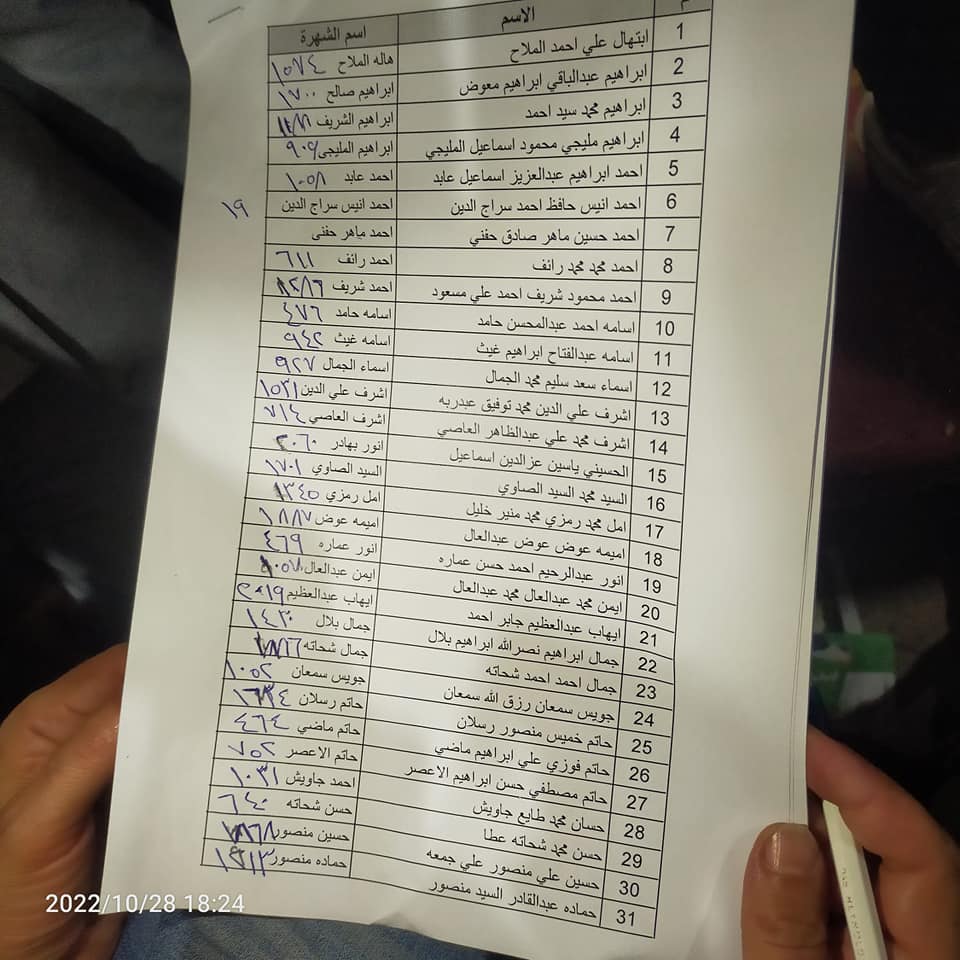 م الاسم اسم الشهرة
1 ابتهال علي احمد الملاح هاله الملاح ١٥٧٤
2 ابراهيم عبدالباقي ابراهيم معوض ابراهيم صالح ١٧٠٠
3 ابراهيم محمد سيد احمد ابراهيم الشريف
4 ابراهيم مليجي محمود اسماعيل المليجي ابراهيم المليجي
5 احمد ابراهيم عبدالعزيز اسماعيل عابد احمد عابد ١٠٥٨
6 احمد انيس حافظ احمد سراج الدين احمد انيس سراج الدين ١٩
7 احمد حسين ماهر صادق حفني احمد ماهر حفنى
8 احمد محمد محمد رائف احمد رائف ٦١١
9 احمد محمود شريف احمد علي مسعود احمد شريف ١٢٨٦
10 اسامه احمد عبدالمحسن حامد اسامه حامد ٤٧٦
11 اسامه عبدالفتاح ابراهيم غيث اسامه غيث ٩٤٢
12 اسماء سعد سليم محمد الجمال اسماء الجمال ٩٢٧
13 اشرف علي الدين محمد توفيق عبدربه اشرف علي الدين ١٥٣١
14 اشرف محمد علي عبدالظاهر العاصي اشرف العاصي ٧١٤
15 الحسيني ياسين عزالدين اسماعيل انور بهادر ٢٠٦٠
16 السيد محمد السيد الصاوي السيد الصاوي ١٧٠١
17 امل محمد رمزي محمد منير خليل امل رمزي ١٣٤٥
18 اميمه عوض عوض عبدالعال اميمه عوض ١٨٨٧
19 انور عبدالرحيم احمد حسن عماره انور عماره ٤٦٩
20 ايمن محمد عبدالعال محمد عبدالعال ايمن عبدالعال
21 ايهاب عبدالعظيم جابر احمد ايهاب عبدالعظيم ٢٠١٩
22 جمال ابراهيم نصرالله ابراهيم بلال جمال بلال ١٤٣٠
23 جمال احمد احمد شحاته جمال شحاته
24 جويس سمعان رزق الله سمعان جويس سمعان ١٠٥٢
25 حاتم خميس منصور رسلان حاتم رسلان
26 حاتم فوزي علي ابراهيم ماضي حاتم ماضي ٤٦٤
27 حاتم مصطفي حسن ابراهيم الاعصر حاتم الاعصر ٧٥٢
28 حسان محمد طايع جاويش احمد جاويش ١٠٣١
29 حسن محمد شحاته عطا حسن شحاته ٦٤٠
30 حسين علي منصور علي جمعه حسين منصور
31 حماده عبدالقادر السيد منصور حماده منصور
2022/10/28 18:24